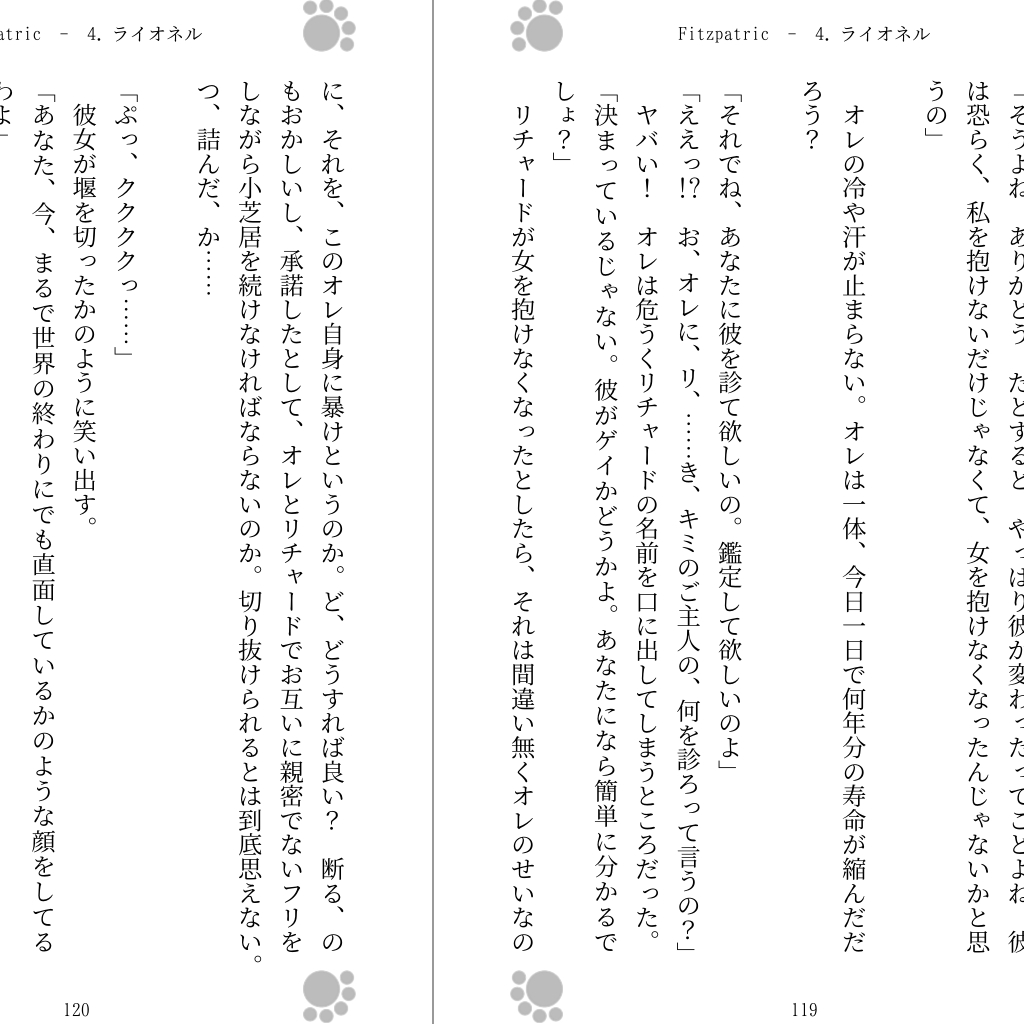 Fitzpatric － 4. ライオネル
「そうよね、ありがとう。だとすると、やっぱり彼が変わったってことよね。彼
は恐らく、私を抱けないだけじゃなくて、女を抱けなくなったんじゃないかと思
うの」
オレの冷や汗が止まらない。オレは一体、今日一日で何年分の寿命が縮んだだ
ろう？
「それでね、あなたに彼を診て欲しいの。鑑定して欲しいのよ」
「ええっ!?　お、オレに、リ、……き、キミのご主人の、何を診ろって言うの？」
ヤバい！　オレは危うくリチャードの名前を口に出してしまうところだった。
「決まっているじゃない。彼がゲイかどうかよ。あなたになら簡単に分かるで
しょ？」
リチャードが女を抱けなくなったとしたら、それは間違い無くオレのせいなの
119
atric － 4. ライオネル
に、それを、このオレ自身に暴けというのか。ど、どうすれば良い？　断る、の
もおかしいし、承諾したとして、オレとリチャードでお互いに親密でないフリを
しながら小芝居を続けなければならないのか。切り抜けられるとは到底思えない。
つ、詰んだ、か……
「ぷっ、クククっ……」
彼女が堰を切ったかのように笑い出す。
「あなた、今、まるで世界の終わりにでも直面しているかのような顔をしてる
わよ」
120